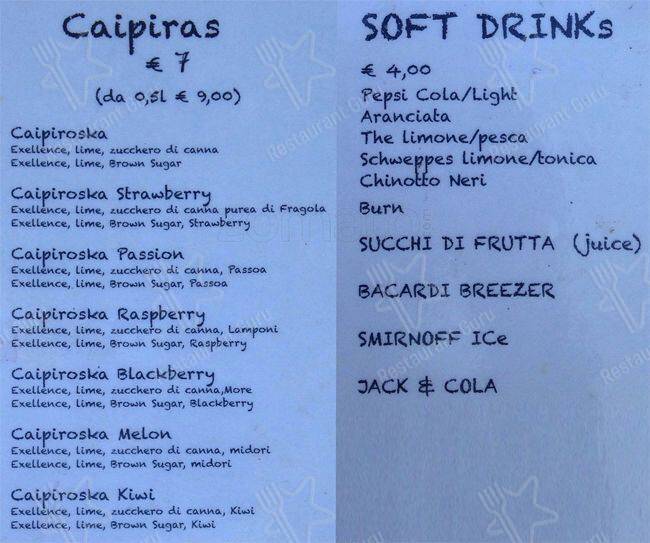 Caipiras
€ 7
(da 0,5l € 9,00)
Caipiroska
Exellence, lime, zucchero di canna
Exellence, lime, Brown Sugar
Caipiroska Strawberry
Exellence, lime, zucchero di canna purea di Fragola
Exellence, lime, Brown Sugar, Strawberry
Caipiroska Passion
Exellence, lime, zucchero di canna, Passoa
Exellence, lime, Brown Sugar, Passoa
Caipiroska Raspberry
Exellence, lime, zucchero di canna, Lamponi
Exellence, lime, Brown Sugar, Raspberry
Caipiroska Blackberry
Exellence, lime, zucchero di canna,More
Exellence, lime, Brown Sugar, Blackberry
Caipiroska Melon
Exellence, lime, zucchero di canna, midori
Exellence, lime, Brown Sugar, midori
Caipiroska Kiwi
Exellence, lime, zucchero di canna, Kiwi
Exellence, lime, Brown Sugar, Kiwi
SOFT DRINKs
€ 4,00
Pepsi Cola/Light
Aranciata
The limone/pesca
Schweppes limone/tonica
Chinotto Neri
Burn
SUCCHI DI FRUTTA (juice)
BACARDI BREEZER
SMIRNOFF ICe
JACK & COLA
Restaurant Guru